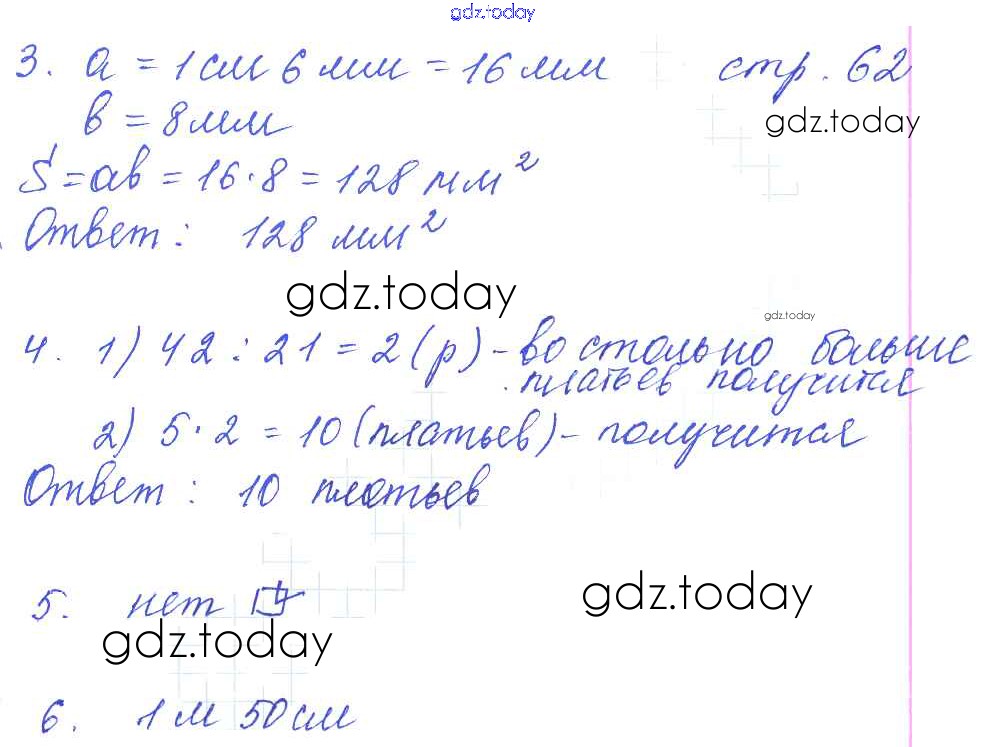 gdz.today
3. a = 1 см 6 мм = 16 мм стр. 62
в = 8 мм
gdz.today
S = ав = 16·8 = 128 мм²
Ответ: 128 мм²
gdz.today
gdz.today
4. 1) 42 : 21 = 2 (р) - во стольно больше
платьев получится
2) 5·2 = 10 (платьев) - получится
Ответ: 10 платьев
gdz.today
5. нет
gdz.today
6. 1 м 50 см